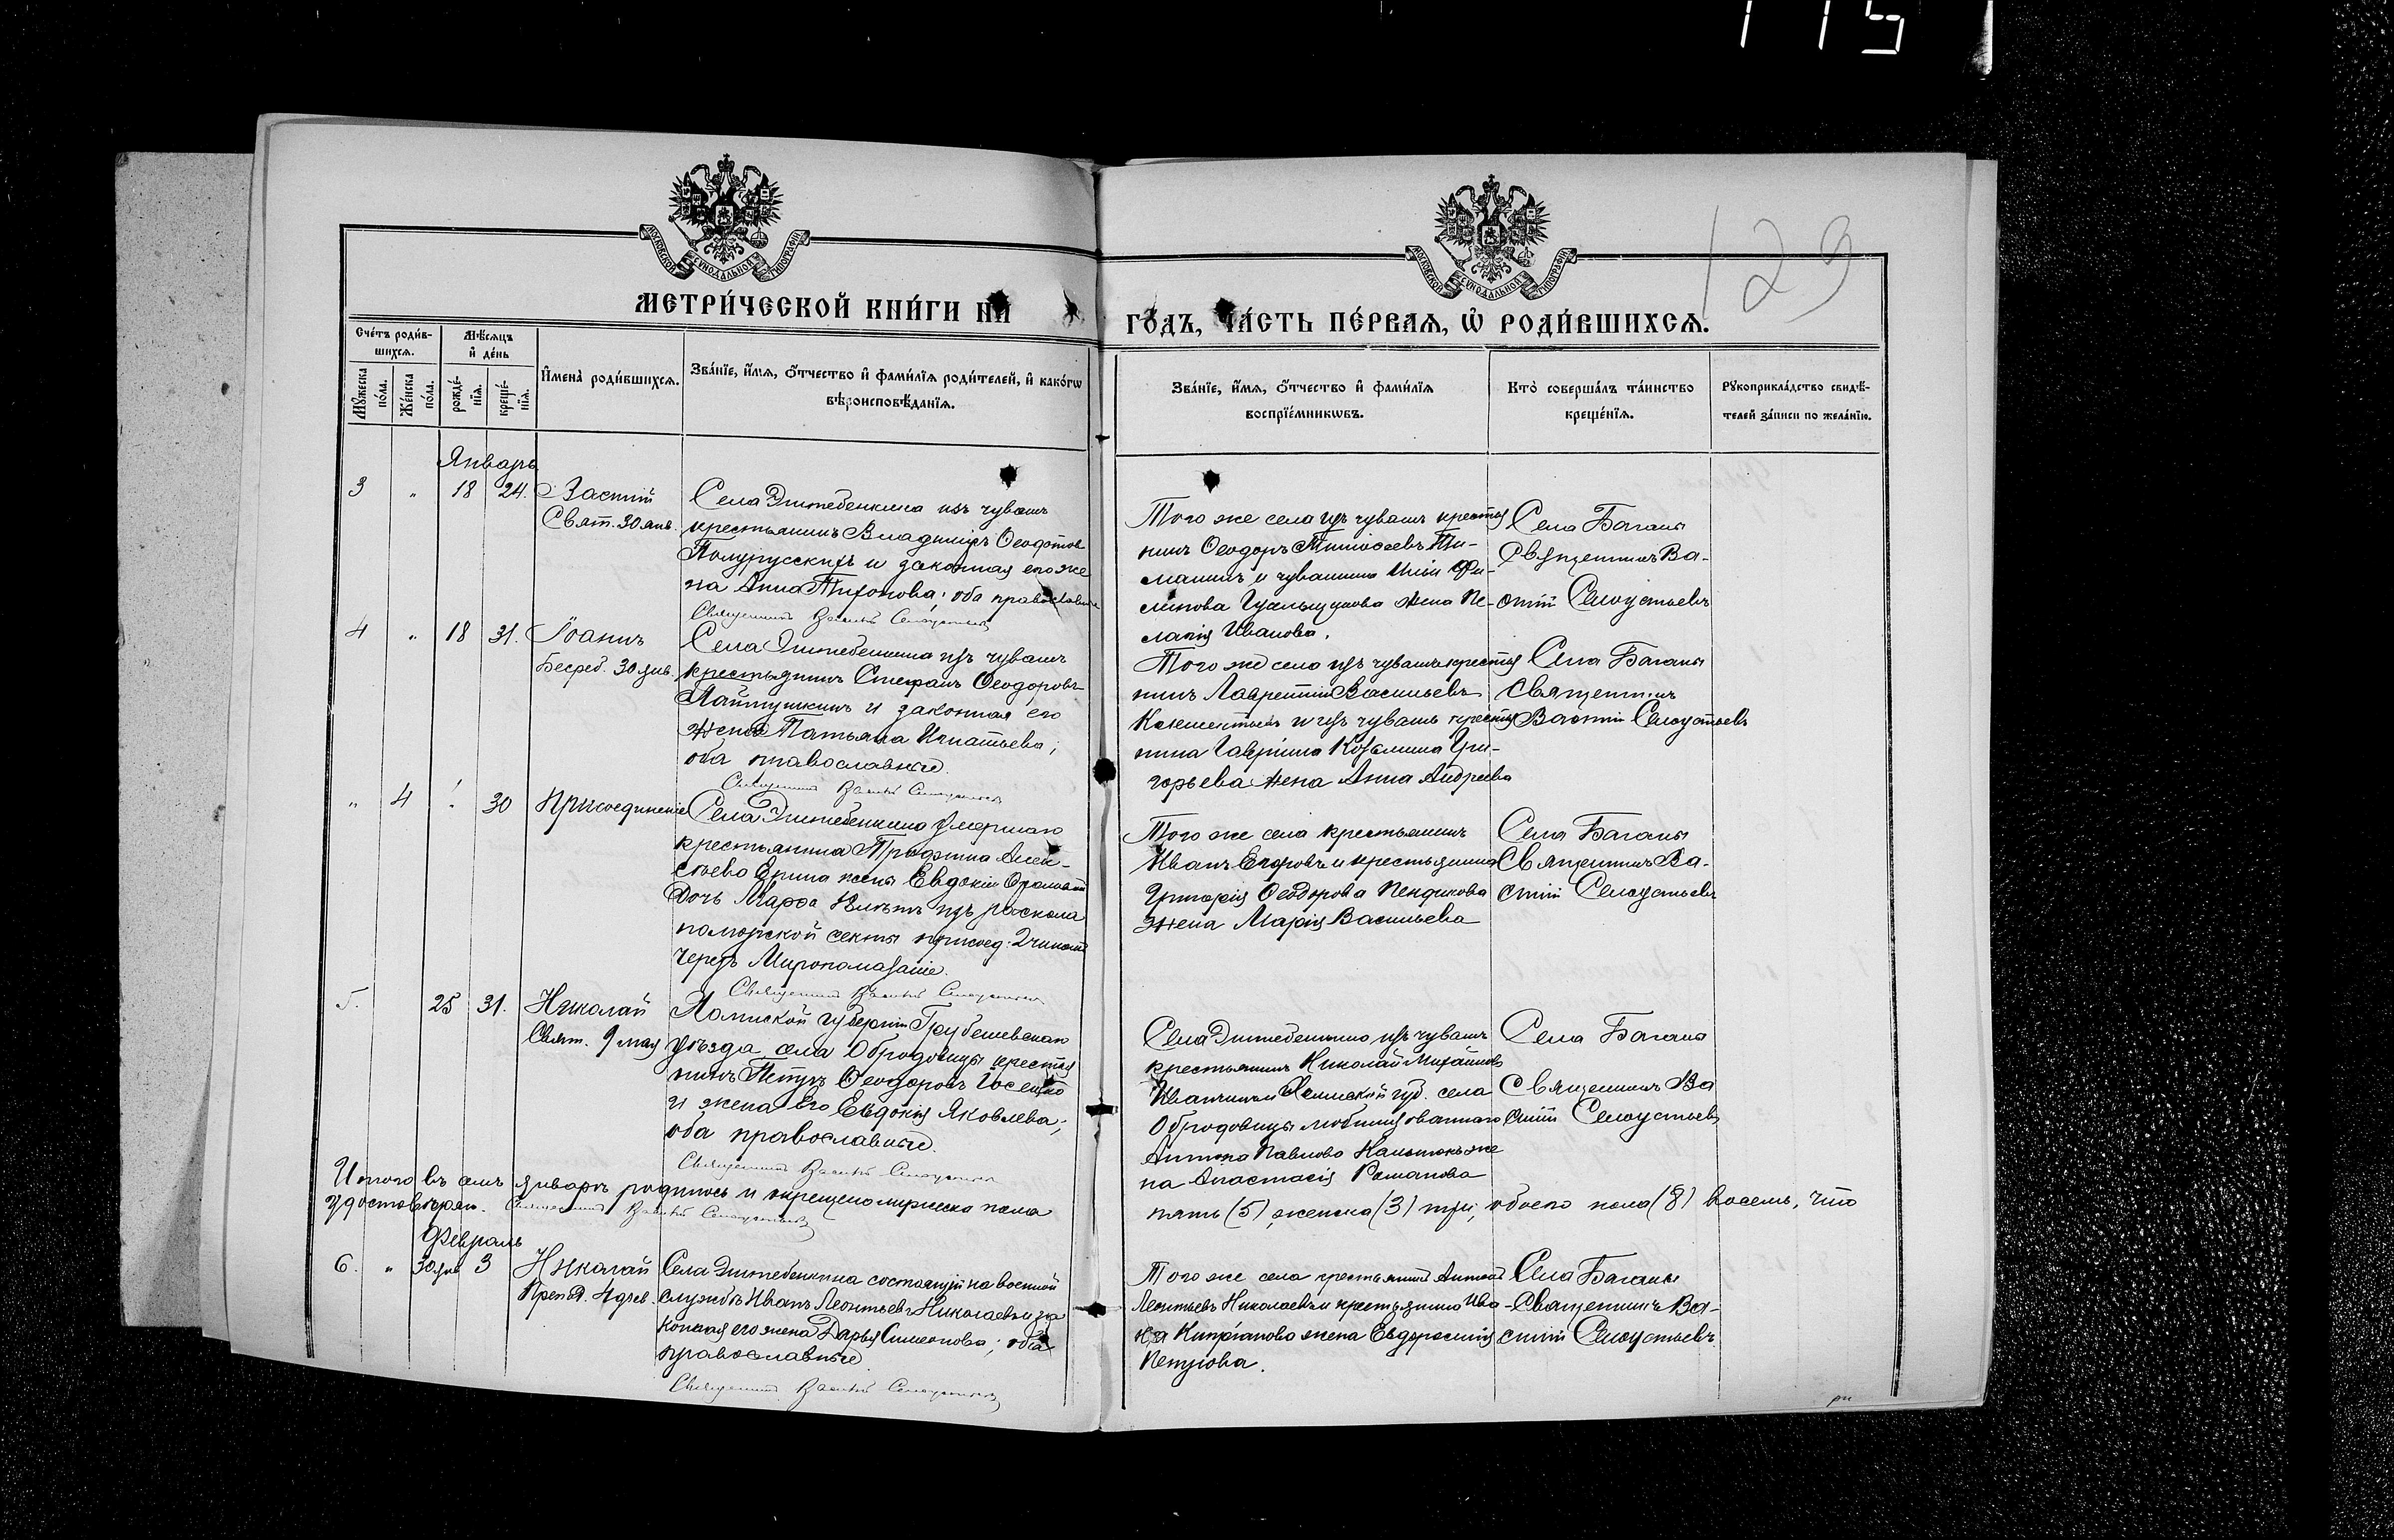 115
129
МОСКОВСКОЙ СѴНОДАЛЬНОЙ ТИПОГРАФІИ
МОСКОВСКОЙ СѴНОДАЛЬНОЙ ТИПОГРАФІИ
МЕТРИ́ЧЕСКОЙ КНИ́ГИ НА
ГО́ДЪ, ЧА́СТЬ ПЕ́РВАЯ, Ѡ РОДИ́ВШИХСЯ.
Сче́тъ роди́в-
шихся.
Мѣ́сяцъ
и де́нь
Му́жеска по́ла.
Же́нска по́ла.
рожде́-
нія.
креще́-
нія.
Имена̀ роди́вшихся.
Зва́ніе, и́мя, о́тчество и фами́лія роди́телей, и како́гѡ
вѣроисповѣ́данія.
Зва́ніе, и́мя, о́тчество и фами́лія
воспріе́мникѡвъ.
Кто̀ соверша́лъ та́инство
креще́нія.
Рукоприкла́дство свидѣ́-
телей за́писи по жела́нію.
Январь
3 „ 18 24.
Василій
Свят. 30 янв.
Села изъ чувашъ
крестьянинъ Владиміръ Ѳеодотов
Полурусскихъ и законная его же
на Анна Тихонова; оба православные
Священникъ Василій
Того же села изъ чувашъ крестья
нинъ Ѳеодоръ Тимоѳеевъ Ти-
машинъ и чувашина Ильи Фи-
липова жена Пе-
лагія Иванова.
Села Баганы
Священникъ Ва-
силій
4 „ 18 31.
Іоаннъ
Безсреб. 30 янв.
Села изъ чувашъ
крестьянинъ Стефанъ Ѳеодоровъ
и законная его
жена Татьяна Игнатьева;
оба православные.
Священникъ Василій
Того же села изъ чувашъ крестья
нинъ Лаврентій Васильевъ
и изъ чувашъ крестья
нина Гавріила Козьмина Гри-
горьева жена Анна Андреева
Села Баганы
Священникъ
Василій
„ 4 30
Присоединеніе
Села умершаго
крестьянина Трофима Алек-
сѣева жены Евдокіи
дочь Марѳа лѣтъ изъ раскола
поморской секты присоед. 2 чиномъ
чрезъ Миропомазаніе.
Священникъ Василій
Того же села крестьянинъ
Иванъ Егоровъ и крестьянина
Григорія Ѳеодорова
жена Марія Васильева
Села Баганы
Священникъ Ва-
силій
5. 25 31.
Николай
Свят. 9 мая
губерніи Грубешевскаго
уѣзда села Обродовицы крестья
нинъ Петръ Ѳеодоровъ
и жена его Евдокія Яковлева;
оба православные.
Священникъ Василій
Села изъ чувашъ
крестьянинъ Николай Михайловъ
Иванчинъ Холмской губ. села
Обродовицы мобилизованнаго
Антона Павлова же
на Анастасія Романова
Села Баганы
Священникъ Ва
силій
Итого въ семъ январѣ родилось и крещено мужеска пола
пять (5), женска (3) три, обоего пола (8) восемь, что
удостовѣряю. Священникъ Василій
Февраль
6. „ 30 янв 3
Николай
Преп. 4 фев.
Села состоящій на военной
службѣ Иванъ Леонтьевъ Николаевъ и за
конная его жена Дарья Симеонова; оба
православные
Священникъ Василій
Того же села крестьянинъ Антоній
Леонтьевъ Николаевъ и крестьянина Ива-
на Кипріанова жена Евфросинія
Петрова.
Села Баганы
Священникъ Ва-
силій